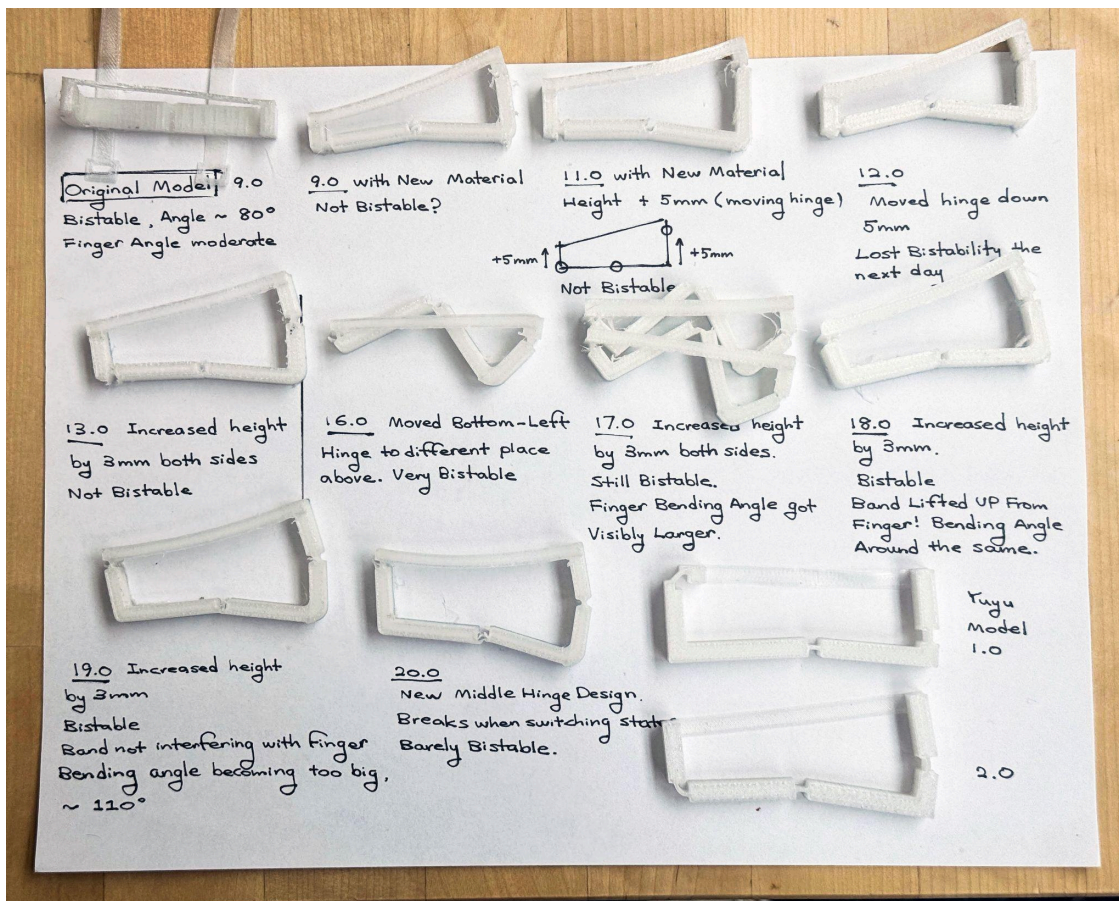 Original Model 9.0
Bistable, Angle ~ 80°
Finger Angle moderate
9.0 with New Material
Not Bistable?
11.0 with New Material
Height + 5mm (moving hinge)
+5mm
+5mm
Not Bistable
12.0
Moved hinge down
5mm
Lost Bistability the
next day
13.0 Increased height
by 3mm both sides
Not Bistable
16.0 Moved Bottom-Left
Hinge to different place
above. Very Bistable
17.0 Increased height
by 3mm both sides.
Still Bistable.
Finger Bending Angle got
Visibly Larger.
18.0 Increased height
by 3mm.
Bistable
Band Lifted UP From
Finger! Bending Angle
Around the same.
19.0 Increased height
by 3mm
Bistable
Band not interfering with Finger
Bending angle becoming too big,
~ 110°
20.0
New Middle Hinge Design.
Breaks when switching stat
Barely Bistable.
Yuyu
Model
1.0
2.0